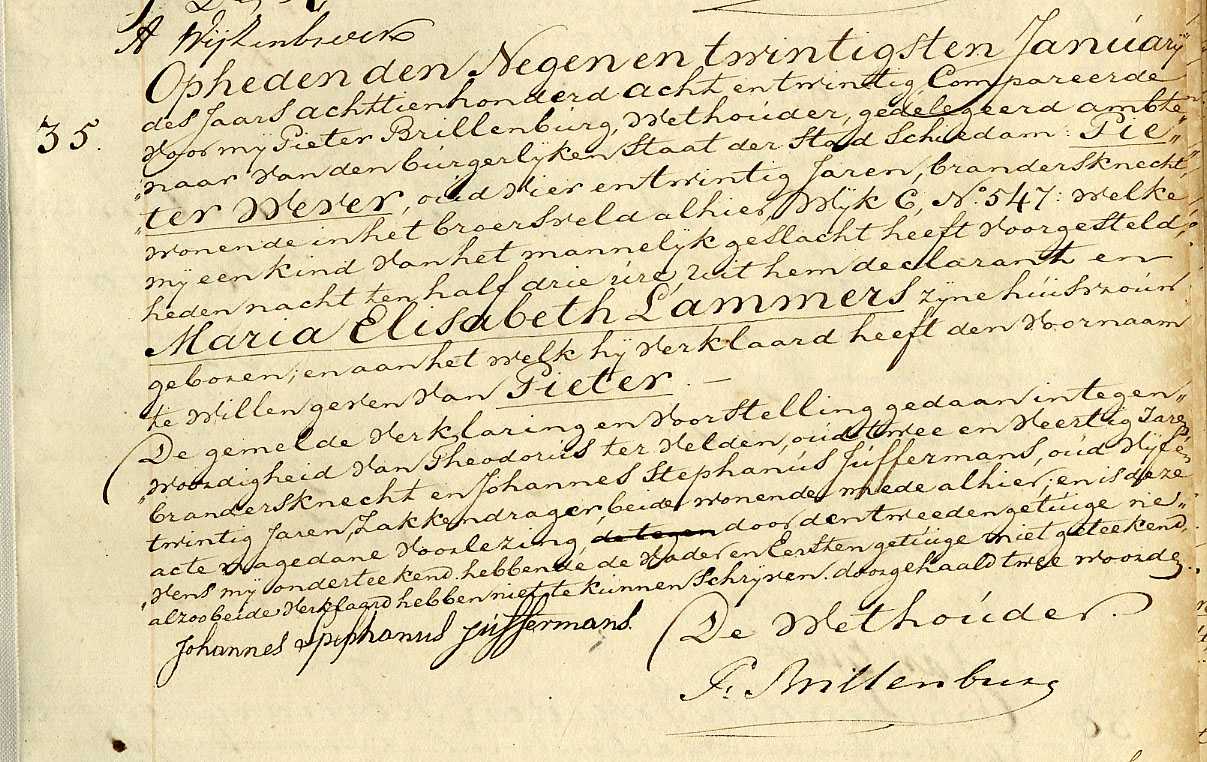 A Wijkenbseen
35.
Opheden den Negen en twintigsten Januarij
des Jaars achttienhonderd acht en twintig, Compareerde
Voor my Pieter Brillenburg, Wethouder, gedelegeerd ambte„
„naar van den burgerlyken Staat der Stad Schiedam: Pie„
„ter Wever, oud vier en twintig Jaren, brandersknecht
wonende in het broersveld alhier, Wyk C, No. 547: welke
my een kind van het mannelyk geslacht heeft voorgesteld,
heden nacht ten half drie ure, uit hem declarant en
Maria Elisabeth Lammers zyne huisvrouw
geboren; en aan het welk hy verklaard heeft den Voornaam
te willen geven van Pieter. —
De gemelde verklaring en voorstelling gedaan in tegen„
„woordigheid van Theodorus ter Velden, oud twee en veertig Jaren
brandersknecht en Johannes Stephanus Juffermans, oud vyf en
twintig Jaren, Zakkendrager, beide wonende mede alhier; en is deze
acte na gedane voorlezing, door den tweeden getuige ne„
„vens my onderteekend. hebbende de Vader en Eersten getuige niet geteekend,
alzoo beide verklaard hebben niet te kunnen schryven. doorgehaald twee woorden
Johannes stephanus juffermans.
De Wethouder.
P. Brillenburg